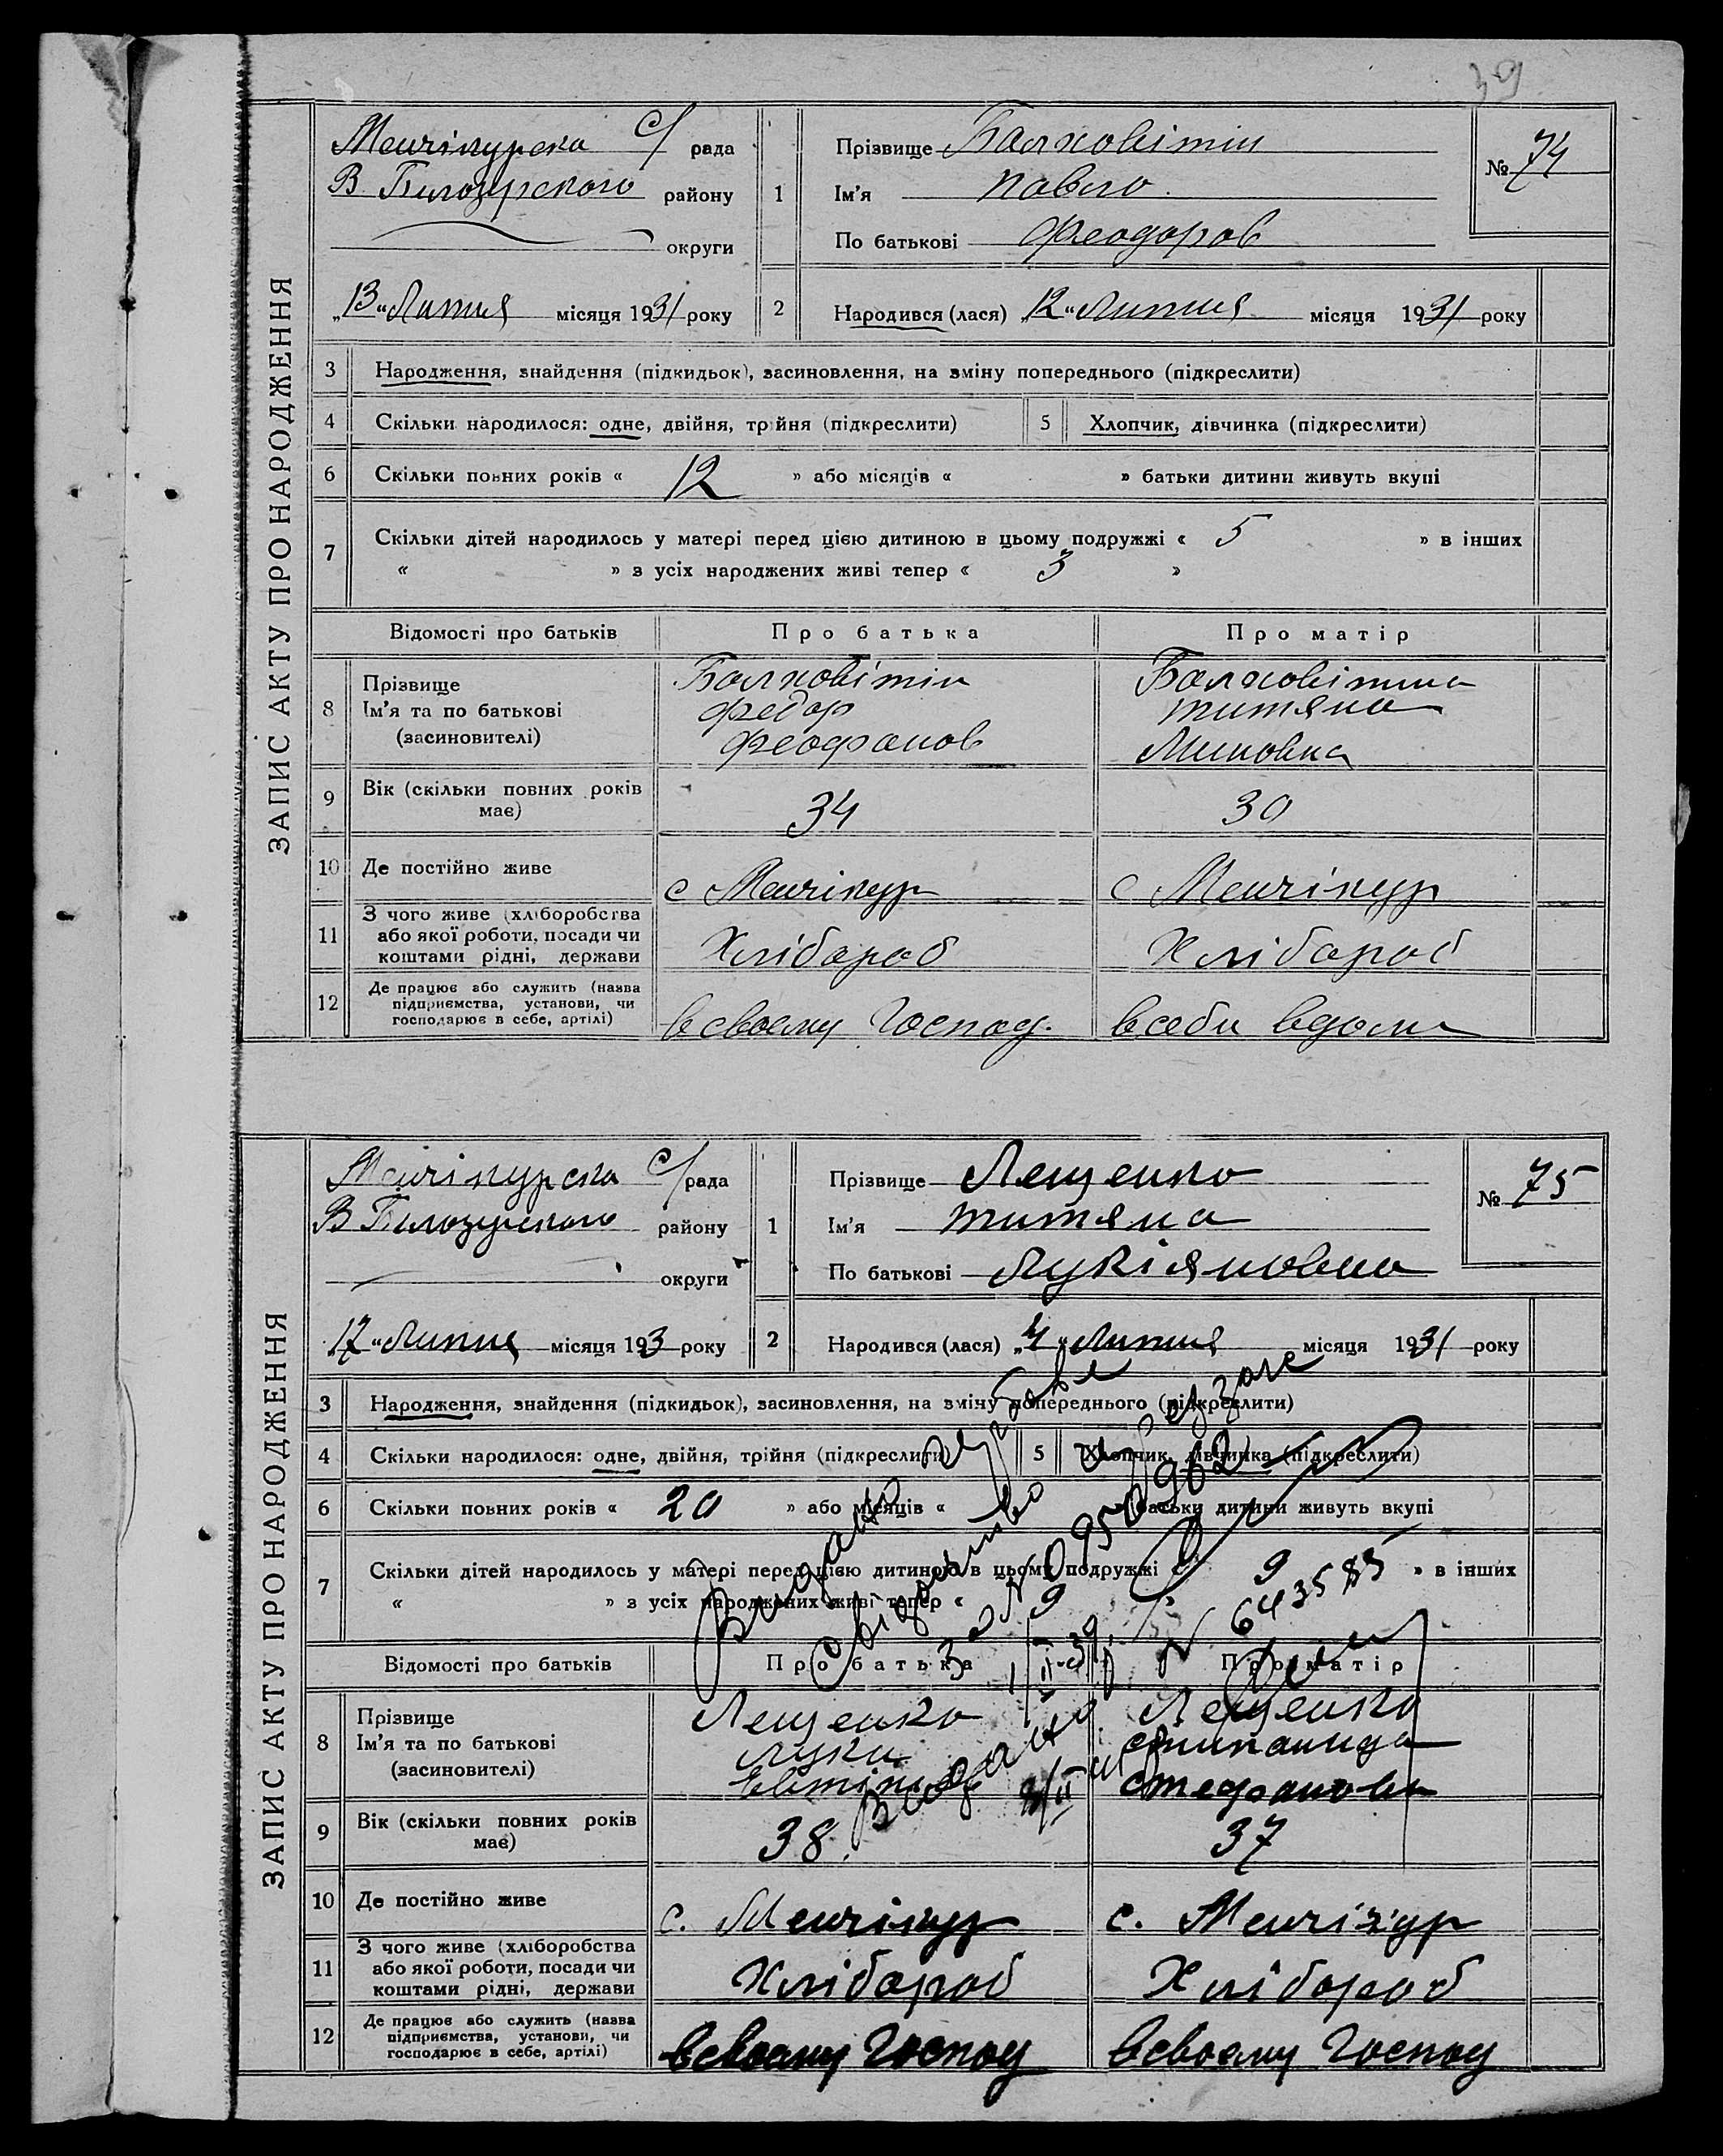 39
ЗАПИС АКТУ ПРО НАРОДЖЕННЯ
Менчікурска с/рада
В Білозурского району
округи
„13“ Липня місяця 1931 року
1 Прізвище Балховітін
Ім'я Павло
По батькові Феодоров
№ 74
2 Народився (лася) „12“ Липня місяця 1931 року
3 Народження, знайдення (підкидьок), засиновлення, на зміну попереднього (підкреслити)
4 Скільки народилося: одне, двійня, трійня (підкреслити) 5 Хлопчик, дівчинка (підкреслити)
6 Скільки повних років « 12 » або місяців « » батьки дитини живуть вкупі
7 Скільки дітей народилось у матері перед цією дитиною в цьому подружжі « 5 » в інших
« » з усіх народжених живі тепер « 3 »
Відомості про батьків Про батька Про матір
8 Прізвище Балховітін Балховітина
Ім'я та по батькові Федор Титяна
(засиновителі) Феофанов Миновна
9 Вік (скільки повних років має) 34 30
10 Де постійно живе с Менчікур с Менчікур
11 З чого живе (хліборобства
або якої роботи, посади чи Хлібороб Хлібороб
коштами рідні, держави
12 Де працює або служить (назва
підприємства, установи, чи
господарює в себе, артілі) в своему Господ. в себи вдома
ЗАПИС АКТУ ПРО НАРОДЖЕННЯ
Менчікурска с/рада
В Білозурского району
округи
„17“ Липня місяця 193 року
1 Прізвище Лещенко
Ім'я Титяна
По батькові Лукіяновна
№ 75
2 Народився (лася) „4“ Липня місяця 1931 року
3 Народження, знайдення (підкидьок), засиновлення, на зміну попереднього (підкреслити)
4 Скільки народилося: одне, двійня, трійня (підкреслити) 5 Хлопчик, дівчинка (підкреслити)
6 Скільки повних років « 20 » або місяців « » батьки дитини живуть вкупі
7 Скільки дітей народилось у матері перед цією дитиною в цьому подружжі « 9 » в інших
« » з усіх народжених живі тепер « 9
Видано
свідоцтво
за № 0950962
№ 643583
Видано
Відомості про батьків Про батька Про матір
8 Прізвище Лещенко Лещенко
Ім'я та по батькові Лука
(засиновителі) Стефановна
9 Вік (скільки повних років має) 38 37
10 Де постійно живе с. Менчікур с. Менчікур
11 З чого живе (хліборобства
або якої роботи, посади чи Хлібороб Хлібороб
коштами рідні, держави
12 Де працює або служить (назва
підприємства, установи, чи
господарює в себе, артілі) в своему Господ в своему Господ